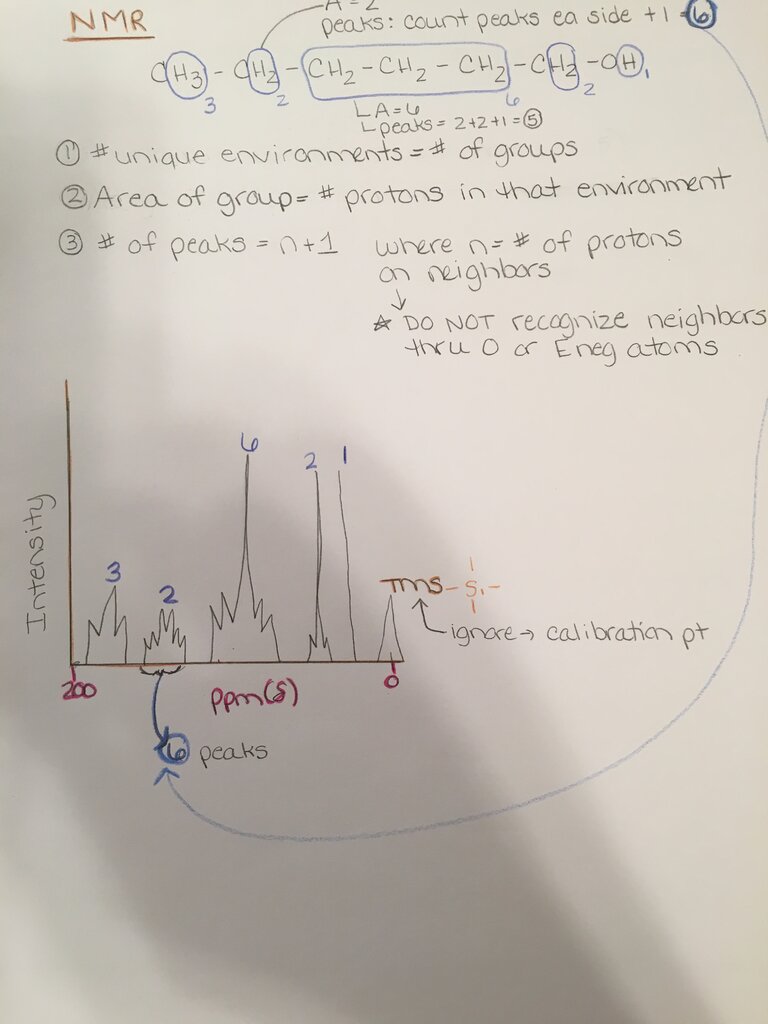 A = 2
NMR
peaks: count peaks ea side +1 = 6
CH3 - CH2 - CH2 - CH2 - CH2 - CH2 - OH
3 2 6 2 1
A = 6
peaks = 2+2+1 = 5
① # unique environments = # of groups
② Area of group = # protons in that environment
③ # of peaks = n+1 where n = # of protons
on neighbors
↓
☆ DO NOT recognize neighbors
thru O or Eneg atoms
Intensity
3 2 6 2 1
TMS -Si-
ignore → calibration pt
200 ppm(δ) 0
6 peaks